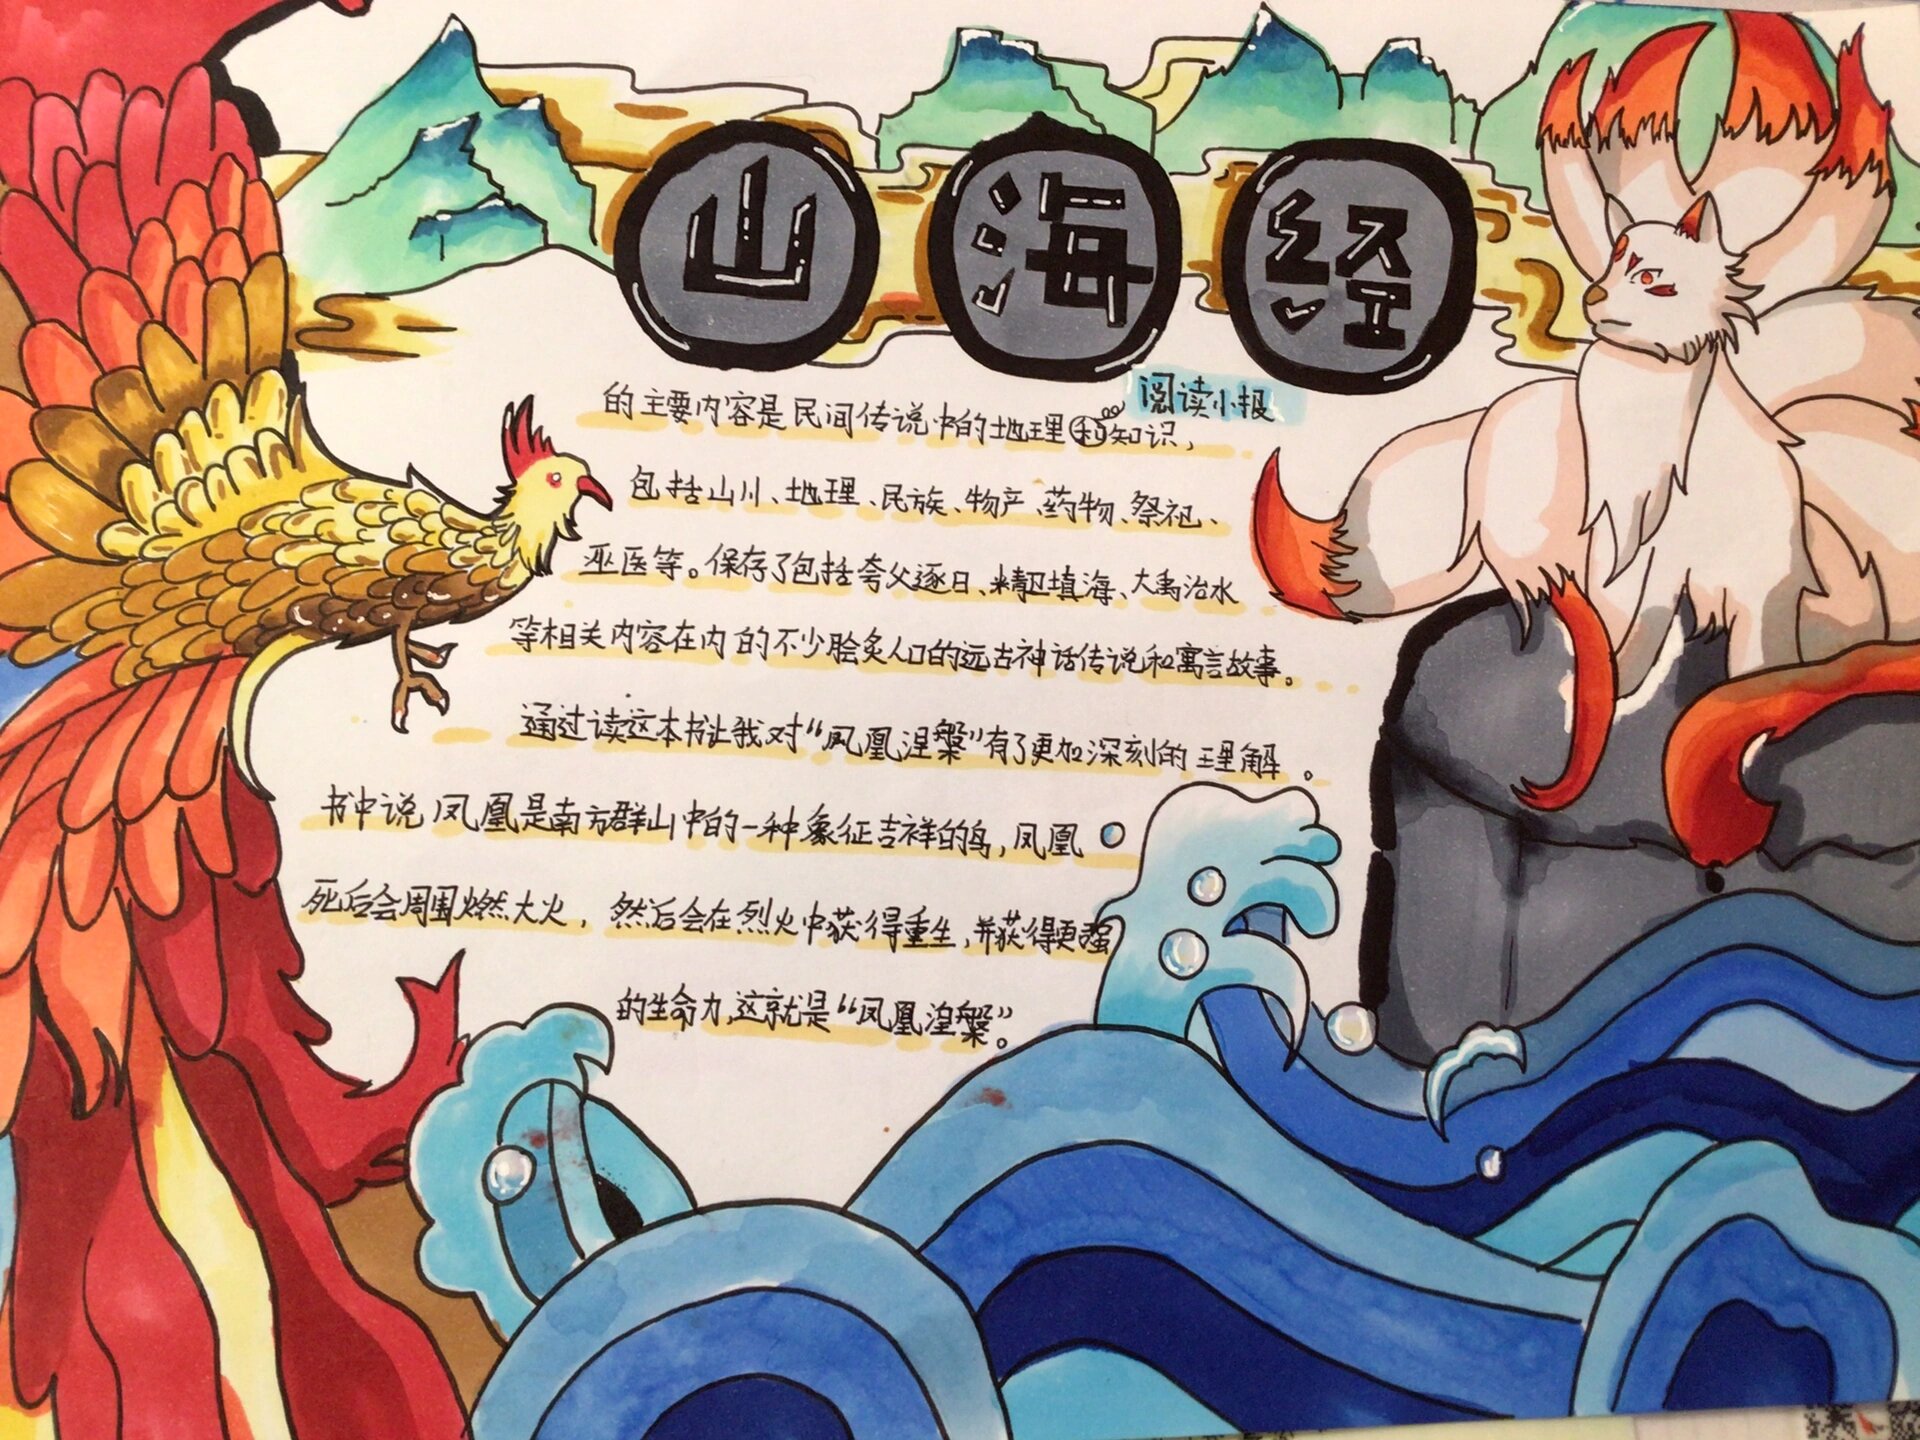 山海经
阅读小报
的主要内容是民间传说中的地理和知识，
包括山川、地理、民族、物产、药物、祭祀、
巫医等。保存了包括夸父逐日、精卫填海、大禹治水
等相关内容在内的不少脍炙人口的远古神话传说和寓言故事。
通过读这本书让我对“凤凰涅槃”有了更加深刻的理解。
书中说凤凰是南方群山中的一种象征吉祥的鸟，凤凰
死后会周围燃大火，然后会在烈火中获得重生，并获得更强
的生命力，这就是“凤凰涅槃”。